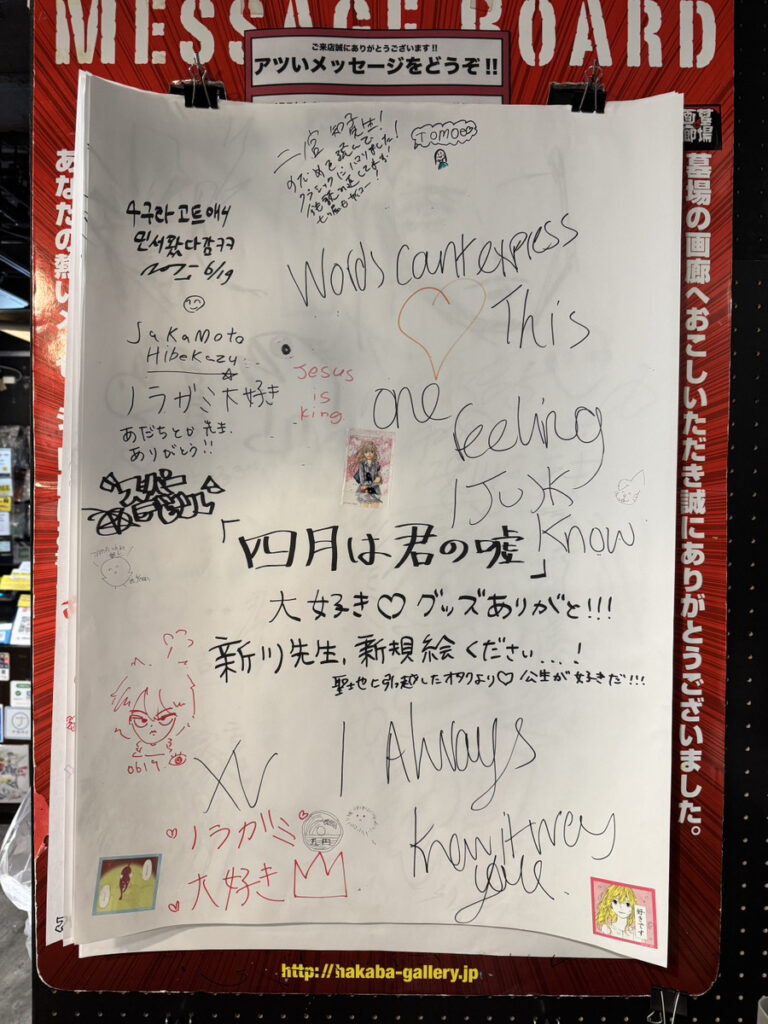 MESSAGE BOARD
ご来店誠にありがとうございます!!
アツいメッセージをどうぞ!!
墓場の画廊
墓場の画廊へおこしいただき誠にありがとうございました。
あなたの熱いメ
二宮 知子先生!
のだめを読んで
クラシックにハマりました!
TOMOE
6/19
words cant express
This
one
feeling
I JUK
Know
SaKaMoto
HibeKazu
ノラガミ大好き
あだちとか先生、
ありがとう!!
Jesus
is
King
「四月は君の嘘」
大好き♡グッズありがと!!!
新川先生、新規絵ください...!
聖地に引っ越したオタクより♡公生が好きだ!!!
0619
XV
I Always
Knew it way
ノラガミ
大好き
五円
好きです
http://hakaba-gallery.jp